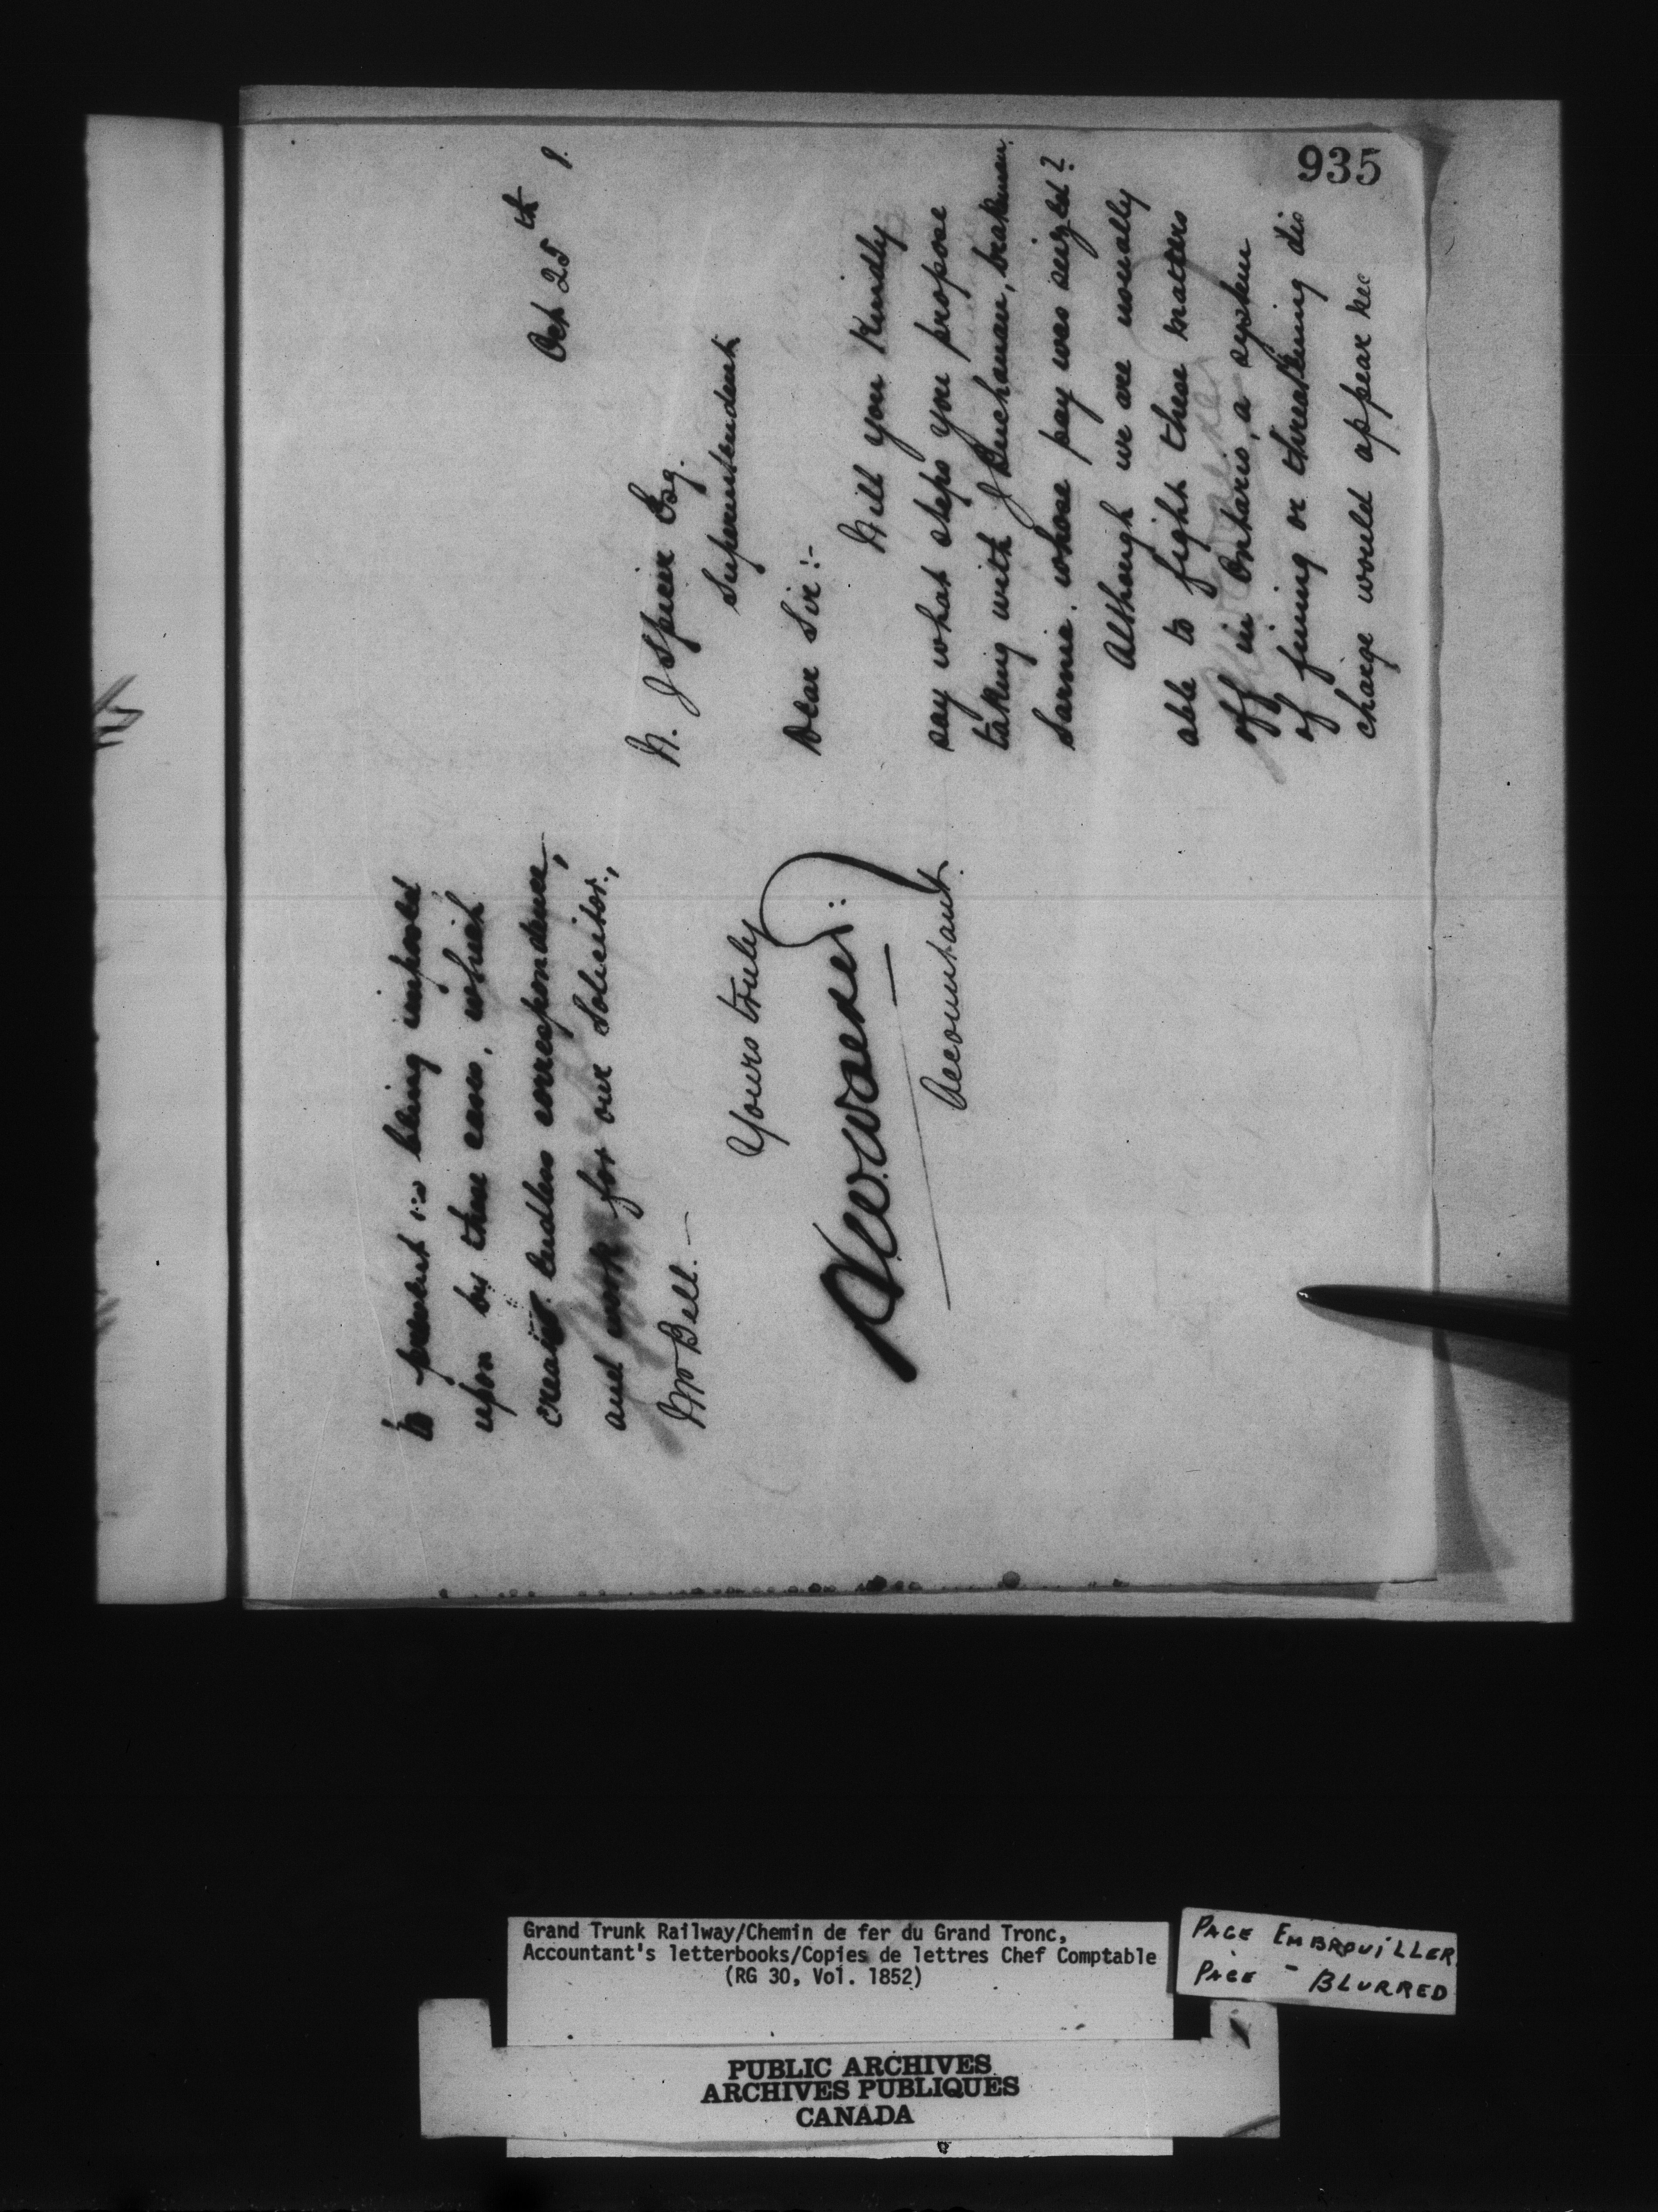 935
Oct 25th 8.
W. J Spicer Esq.
Superintendent
Dear Sir:-
Will you kindly
say what steps you propose
taking with J Buchanan, brakeman
Sarnia. whose pay was seized?
Although we are usually
able to fight these matters
off in Ontario, a system
of fining or threatening dis
charge would appear nec
to prevent us being imposed
upon by these cases, which
create endless correspondence,
and work for our Solicitor,
Mr Bell.—
Yours truly
Accountant.
Grand Trunk Railway/Chemin de fer du Grand Tronc,
Accountant's letterbooks/Copies de lettres Chef Comptable
(RG 30, Vol. 1852)
PAGE EMBROUILLER
PAGE - BLURRED
PUBLIC ARCHIVES
ARCHIVES PUBLIQUES
CANADA